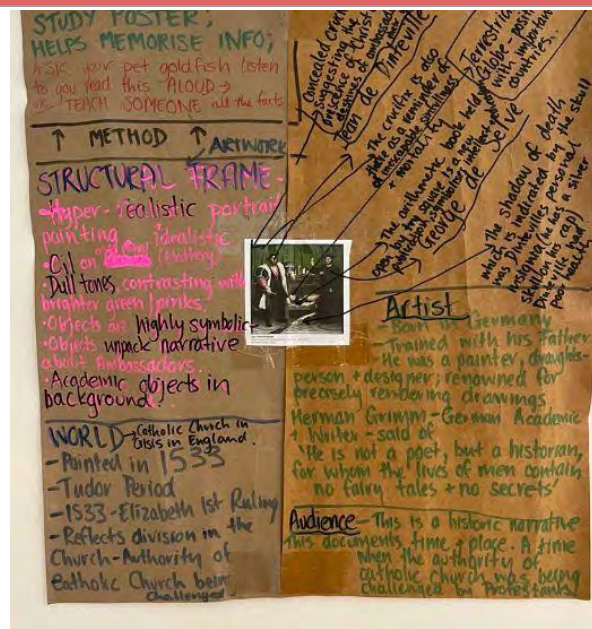 STUDY POSTER;
HELPS MEMORISE INFO;
ASK your pet goldfish listen
to you read this ALOUD →
TEACH SOMEONE all the facts
↑ METHOD ↑
ARTWORK
STRUCTURAL FRAME -
-Hyper-realistic portrait
painting idealistic
(flattery)
-Oil on
·Dull tones contrasting with
brighter green/pinks.
·Objects are highly symbolic
·Objects unpack narrative
about Ambassadors.
·Academic objects in
background.
WORLD → Catholic Church in
Crisis in England.
-Painted in 1533
-Tudor Period
-1533-Elizabeth 1st Ruling
-Reflects division in the
Church-Authority of
Catholic Church being
challenged
concealed
suggesting the
presence of Christ
destinies of ambassadors
Jean de Dinteville
The crucifix is also
there as a reminder of
inescapable sinfulness
+ mortality
Terrestrial
Globe - 
with important
countries.
The arithmetic book held
open by a square is a
George de Selve
The shadow of death
which is indicated by the skull
was Dintevilles personal
(he has a silver
skull on his cap)
Dinteville had
poor health
Artist
-Born in Germany
-Trained with his father
-He was a painter, draughts-
person + designer; renowned for
precisely rendering drawings
Herman Grimm-German Academic
+ Writer - said of
'He is not a poet, but a historian,
for whom the lives of men contain
no fairy tales + no secrets'
Audience - This is a historic narrative
This documents time + place. A time
when the authority of
catholic church was being
challenged by Protestants